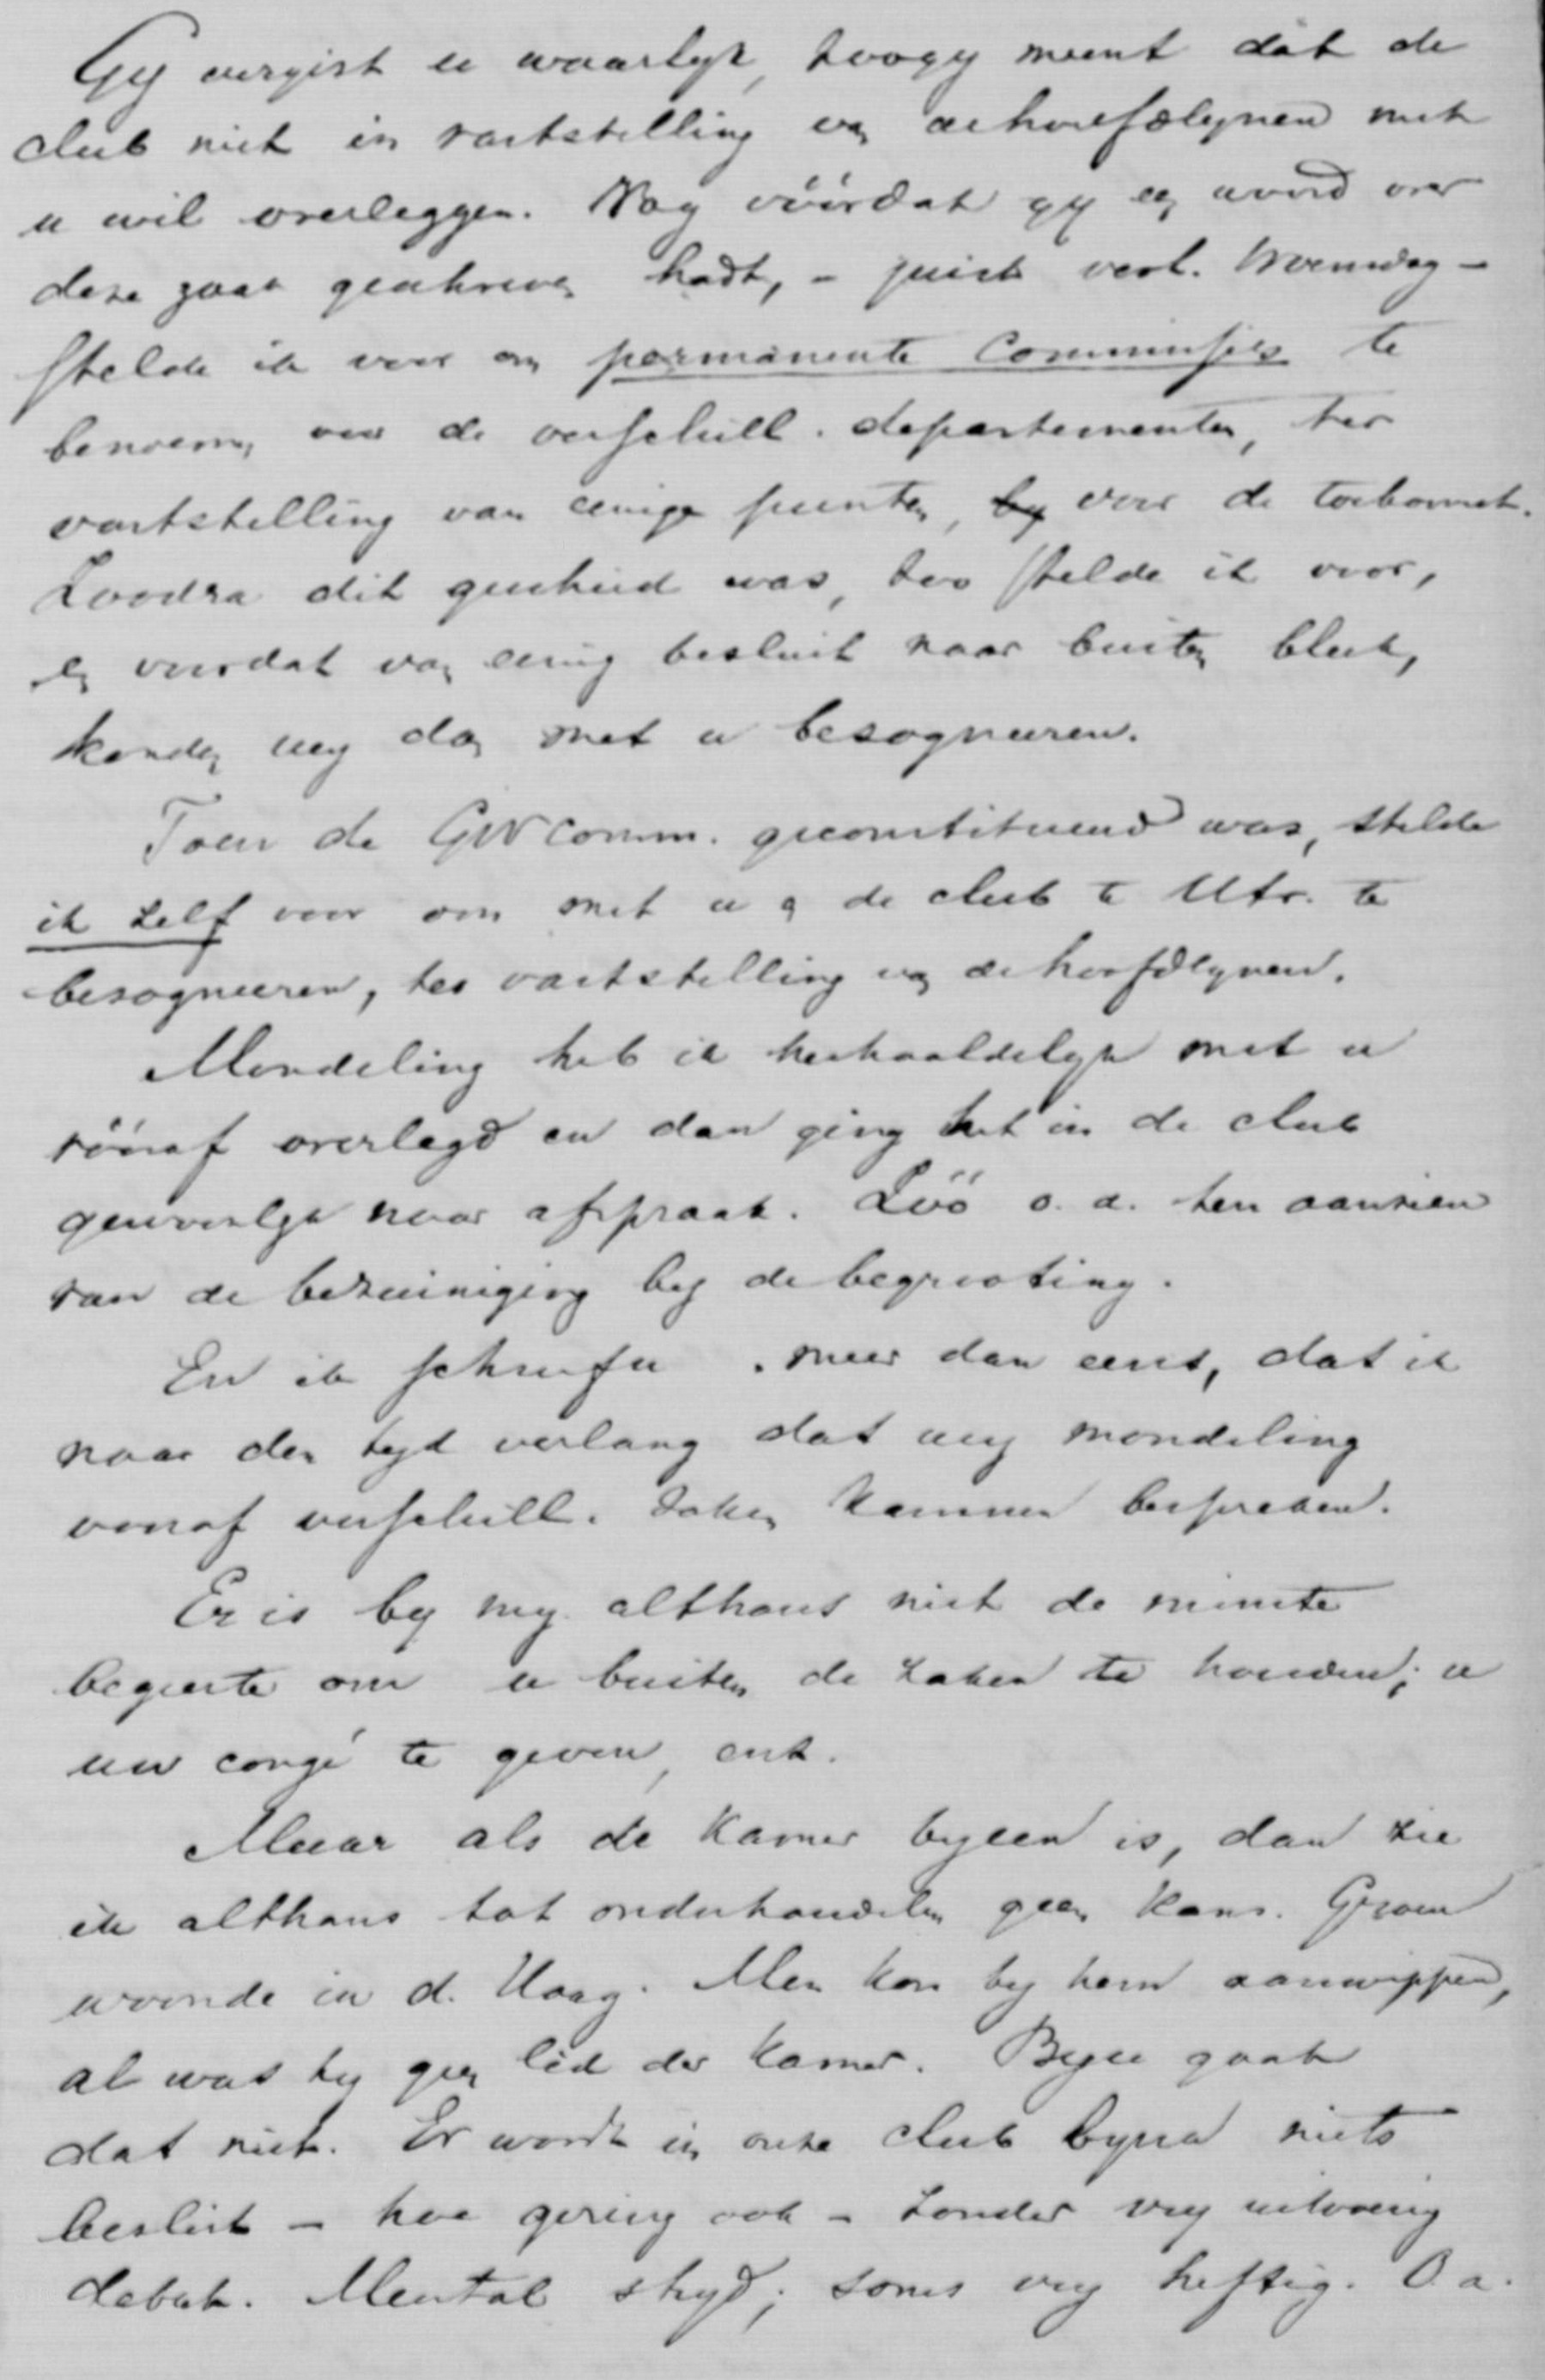 Gy vergist u waarlyk, zoo gy meent dat de
club niet in vaststelling van de hoofdlynen met
u wil overleggen. Nog vóórdat gy een woord over
deze zaak geschreven hadt, - juist verl. Woensdag -
stelde ik voor om permanente Commissies te
benoemen voor de verschill. departementen, ter
vaststelling van eenige punten, by voor de toekomst.
Zoodra dit geschied was, zoo stelde ik voor,
en voordat van eenig besluit naar buiten bleek,
konden wy dan met u besogneeren.
Toen de GWComm. geconstitueerd was, stelde
ik zelf voor om met u en de club te Utr. te
besogneeren, ter vaststelling van de hoofdlynen.
Mondeling heb ik herhaaldelyk met u
vóóraf overlegd en dan ging het in de club
gewoonlyk naar afspraak. Zóó o.a. ten aanzien
van de bezuiniging by de begrooting.
En ik schreef u meer dan eens, dat ik
naar den tyd verlang dat wy mondeling
vooraf verschill. zaken kunnen bespreken.
Er is by my althans niet de minste
begeerte om u buiten de zaken te houden; u
uw congé te geven, enz.
Maar als de Kamer byeen is, dan zie
ik althans tot onderhandelen geen kans. Groen
woonde in d. Haag. Men kon by hem aanwippen,
al was hy geen lid der Kamer. By u gaat
dat niet. Er wordt in onze club byna niets
beslist - hoe gering ook - zonder vry uitvoerig
debat. Meestal stryd; soms vry heftig. O.a.